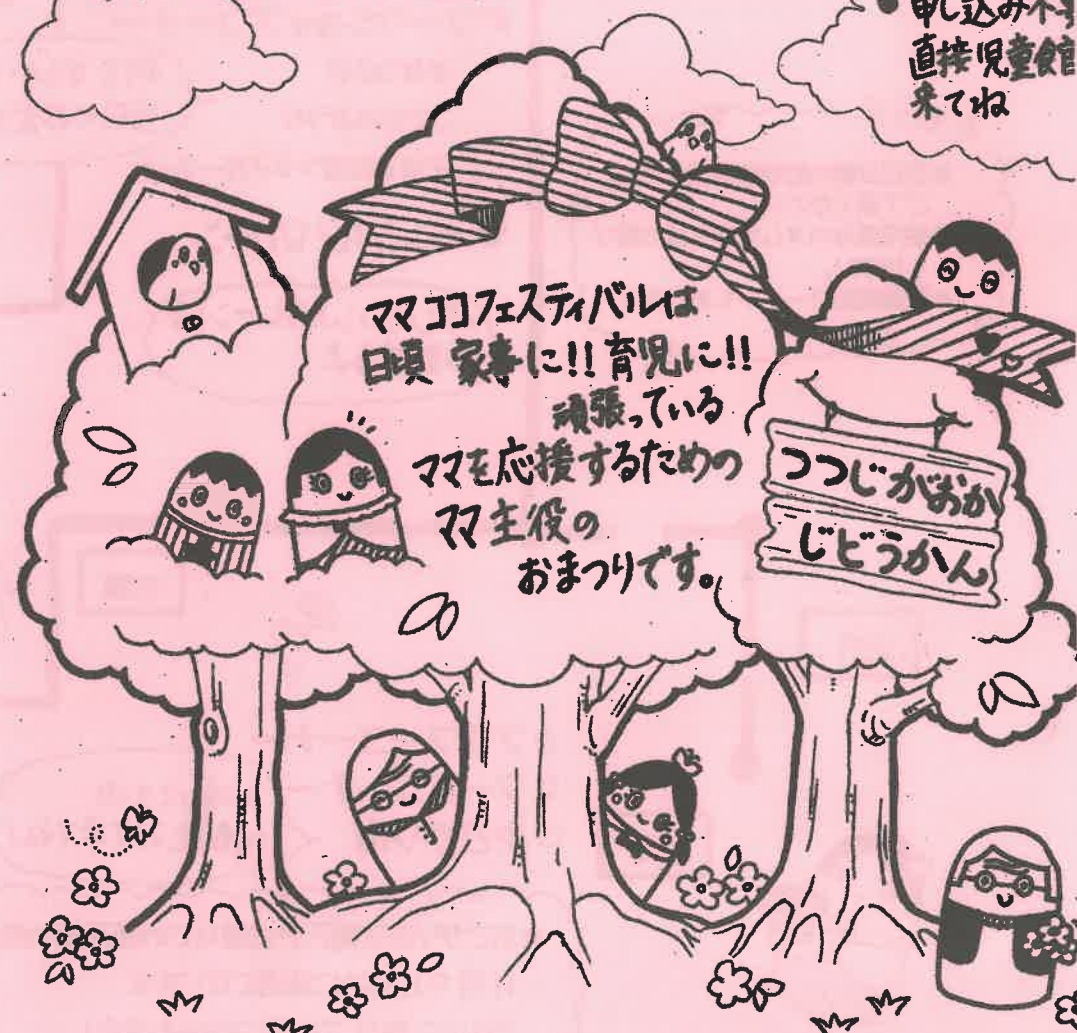 申し込み不
直接児童館
来てね
ママココフェスティバルは
日頃 家事に!!育児に!!
頑張っている
ママを応援するための
ママ主役の
おまつりです。
つつじがおか
じどうかん